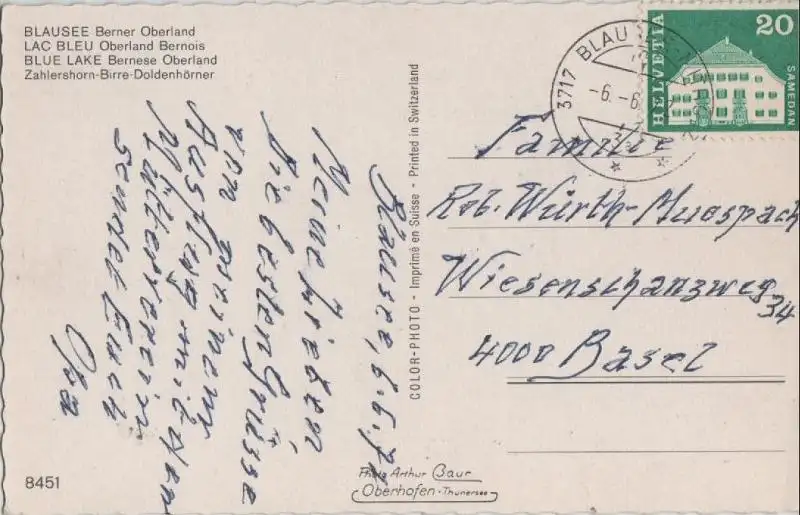 BLAUSEE Berner Oberland
LAC BLEU Oberland Bernois
BLUE LAKE Bernese Oberland
Zahlershorn-Birre-Doldenhörner
Blausee, 6.6.71
Meine Lieben
Die besten Grüsse
von meinem
Ausflug mit dem
Mütterverein
sendet Euch
Opa
8451
COLOR-PHOTO - Imprimé en Suisse - Printed in Switzerland
Photo Arthur Baur
Oberhofen-Thunersee
3717 BLAU
-6.-6.
HELVETIA
20
SAMEDAN
Familie
Rob. Würth-Muespach
Wiesenschanzweg
34
4000 Basel